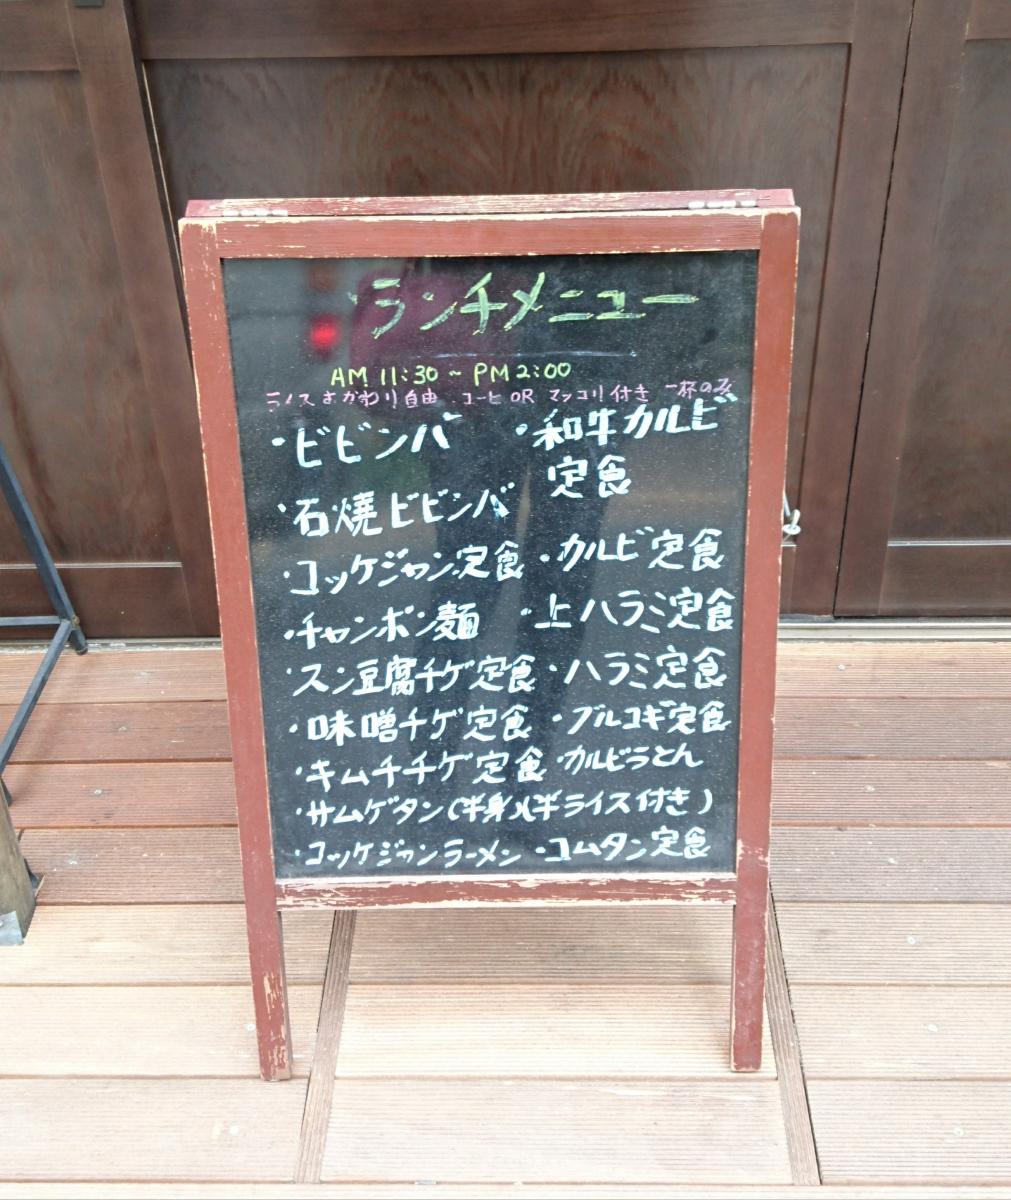 ランチメニュー
AM 11:30 ~ PM 2:00
ライスおかわり自由 コーヒ OR マッコリ付き 一杯のみ
・ビビンバ
・石焼ビビンバ
・コッケジャン定食
・チャンポン麺
・スン豆腐チゲ定食
・味噌チゲ定食
・キムチチゲ定食
・サムゲタン(半身)(半ライス付き)
・コッケジャンラーメン
・和牛カルビ
定食
・カルビ定食
・上ハラミ定食
・ハラミ定食
・プルコギ定食
・カルビうどん
・コムタン定食